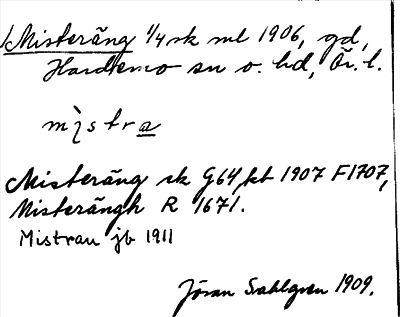 Misteräng 1/4 sk ml 1906, gd,
Hardemo sn o. hd, Ör. l.
mistra
Misteräng sk G64 kb 1907 F1707,
Misterängh R 1671.
Mistran jb 1911
Jöran Sahlgren 1909.